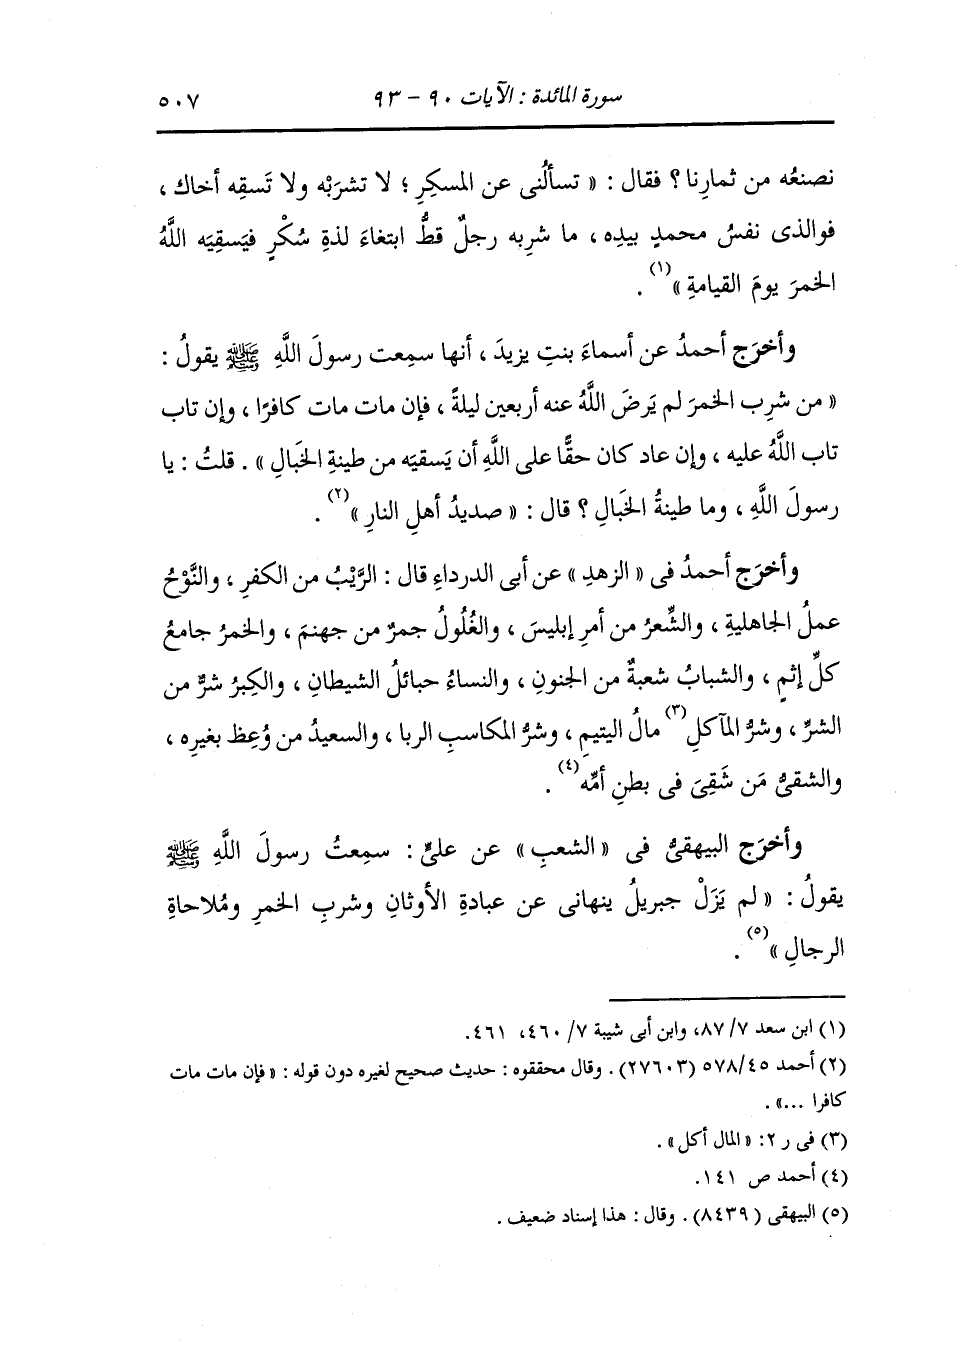 سورة المائدة : الآيات ٩٠ - ٩٣ ٥٠٧
نصنعُه من ثمارِنا ؟ فقال : « تسألُنى عن المسكِرِ ؛ لا تشربْه ولا تَسقِه أخاك ،
فوالذى نفسُ محمدٍ بيدِه ، ما شرِبه رجلٌ قطُّ ابتغاءَ لذةِ سُكْرٍ فيَسقِيَه اللَّهُ
الخمرَ يومَ القيامةِ »(١) .
وأخرَج أحمدُ عن أسماءَ بنتِ يزيدَ ، أنها سمِعت رسولَ اللَّهِ ﷺ يقولُ :
« من شرِب الخمرَ لم يَرضَ اللَّهُ عنه أربعين ليلةً ، فإن مات مات كافرًا ، وإن تاب
تاب اللَّهُ عليه ، وإن عاد كان حقًّا على اللَّهِ أن يَسقيَه من طينةِ الخَبالِ » . قلتُ : يا
رسولَ اللَّهِ ، وما طينةُ الخَبالِ ؟ قال : « صديدُ أهلِ النارِ »(٢) .
وأخرَج أحمدُ فى « الزهدِ » عن أبى الدرداءِ قال : الرَّيْبُ من الكفرِ ، والنَّوْحُ
عملُ الجاهليةِ ، والشِّعرُ من أمرِ إبليسَ ، والغُلُولُ جمرٌ من جهنمَ ، والخمرُ جامعُ
كلِّ إثمٍ ، والشبابُ شعبةٌ من الجنونِ ، والنساءُ حبائلُ الشيطانِ ، والكِبرُ شرٌّ من
الشرِّ ، وشرُّ المآكلِ(٣) مالُ اليتيمِ ، وشرُّ المكاسبِ الربا ، والسعيدُ من وُعِظ بغيرِه ،
والشقىُّ مَن شَقِىَ فى بطنِ أمِّه(٤) .
وأخرَج البيهقىُّ فى « الشعبِ » عن علىٍّ : سمِعتُ رسولَ اللَّهِ ﷺ
يقولُ : « لم يَزَلْ جبريلُ ينهانى عن عبادةِ الأوثانِ وشربِ الخمرِ ومُلاحاةِ
الرجالِ »(٥) .
(١) ابن سعد ٧/ ٨٧، وابن أبى شيبة ٧/ ٤٦٠، ٤٦١.
(٢) أحمد ٤٥/ ٥٧٨ (٢٧٦٠٣) . وقال محققوه : حديث صحيح لغيره دون قوله : « فإن مات مات
كافرا ...» .
(٣) فى ر ٢: « المال أكل » .
(٤) أحمد ص ١٤١.
(٥) البيهقى ( ٨٤٣٩) . وقال : هذا إسناد ضعيف .